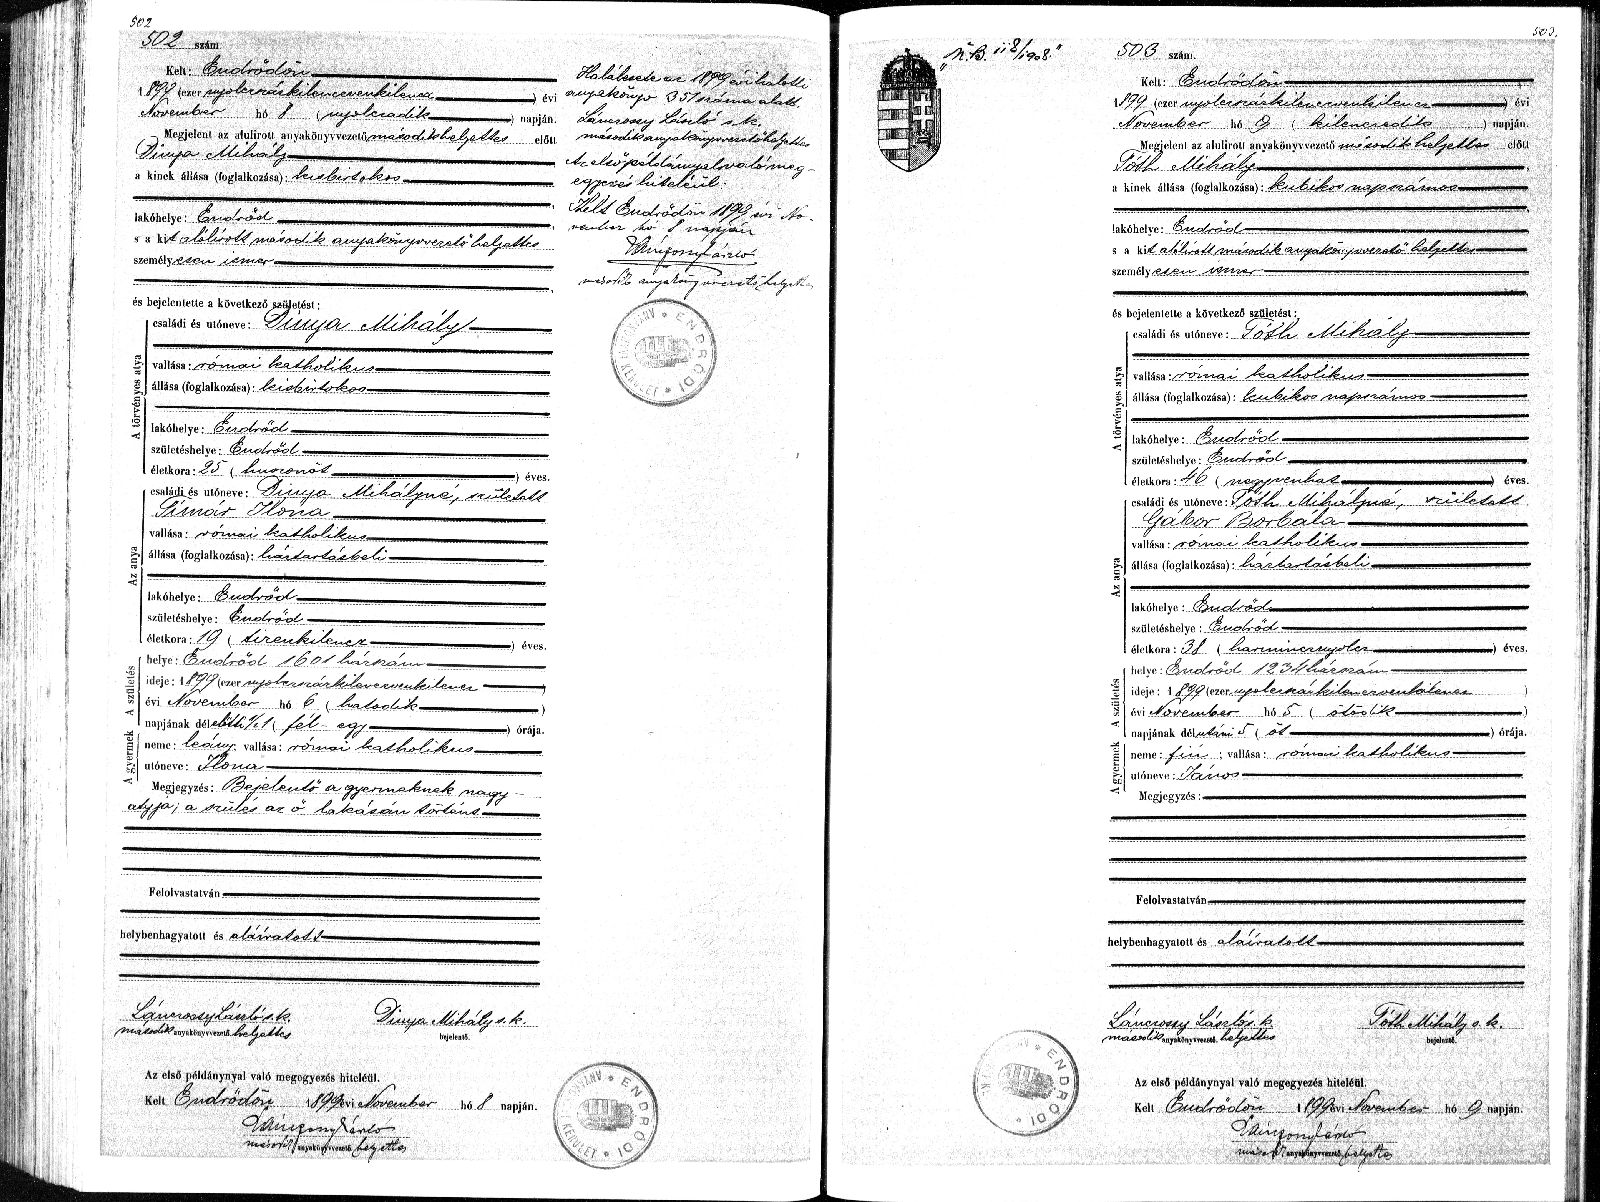 502
502 szám
Kelt: Endrődön
1899 (ezer nyolczszázkilenczvenkilencz) évi
November hó 8 (nyolczadik) napján.
Megjelent az alulirott anyakönyvvezető, második helyettes előtt
Dinya Mihály
a kinek állása (foglalkozása): kisbirtokos
lakóhelye: Endrőd
s a kit alólirott második anyakönyvvezető helyettes
személyesen ismer
és bejelentette a következő születést:
A törvényes atya
családi és utóneve: Dinya Mihály
vallása: római katholikus
állása (foglalkozása): kisbirtokos
lakóhelye: Endrőd
születéshelye: Endrőd
életkora: 25 (huszonöt) éves.
Az anya
családi és utóneve: Dinya Mihályné, született
Tímár Ilona
vallása: római katholikus
állása (foglalkozása): háztartásbeli
lakóhelye: Endrőd
születéshelye: Endrőd
életkora: 19 (tizenkilencz) éves.
A születés
helye: Endrőd 1601 házszám
ideje: 1899 (ezer nyolczszázkilenczvenkilencz)
évi November hó 6 (hatodik)
napjának délelőtti ½1 (fél egy) órája.
A gyermek
neme: leány; vallása: római katholikus
utóneve: Ilona
Megjegyzés: Bejelentő a gyermeknek nagy-
atyja; a szülés az ő lakásán történt
Felolvastatván
helybenhagyatott és aláíratott
Lánczossy László s.k. Dinya Mihály s.k.
második anyakönyvvezető helyettes bejelentő.
Az első példánynyal való megegyezés hiteléül.
Kelt Endrődön 1899 évi November hó 8 napján.
Lánczossy László
második anyakönyvvezető helyettes
ENDRŐDI ANYAKÖNYVI KERÜLET
Halálesete az 1899 évi halotti
anyakönyv 351 száma alatt
Lánczossy László s.k.
második anyakönyvvezető helyettes
Az első példánynyal való meg-
egyezés hiteléül.
Kelt Endrődön 1899 évi No-
vember hó 8 napján
Lánczossy László
második anyakönyvvezető helyettes
ENDRŐDI ANYAKÖNYVI KERÜLET
503.
"N.B. 118/1908."
503 szám.
Kelt: Endrődön
1899 (ezer nyolczszázkilenczvenkilencz) évi
November hó 9 (kilenczedik) napján.
Megjelent az alulirott anyakönyvvezető második helyettes előtt
Tóth Mihály
a kinek állása (foglalkozása): kubikos napszámos
lakóhelye: Endrőd
s a kit alólirott második anyakönyvvezető helyettes
személyesen ismer
és bejelentette a következő születést:
A törvényes atya
családi és utóneve: Tóth Mihály
vallása: római katholikus
állása (foglalkozása): kubikos napszámos
lakóhelye: Endrőd
születéshelye: Endrőd
életkora: 46 (negyvenhat) éves.
Az anya
családi és utóneve: Tóth Mihályné, született
Gábor Borbála
vallása: római katholikus
állása (foglalkozása): háztartásbeli
lakóhelye: Endrőd
születéshelye: Endrőd
életkora: 38 (harmincznyolcz) éves.
A születés
helye: Endrőd 1234 házszám
ideje: 1899 (ezer nyolczszázkilenczvenkilencz)
évi November hó 5 (ötödik)
napjának délutáni 5 (öt) órája.
A gyermek
neme: fiú; vallása: római katholikus
utóneve: János
Megjegyzés:
Felolvastatván
helybenhagyatott és aláíratott
Lánczossy László s.k. Tóth Mihály s.k.
második anyakönyvvezető helyettes bejelentő.
Az első példánynyal való megegyezés hiteléül.
Kelt Endrődön 1899 évi November hó 9 napján.
Lánczossy László
második anyakönyvvezető helyettes
ENDRŐDI ANYAKÖNYVI KERÜLET